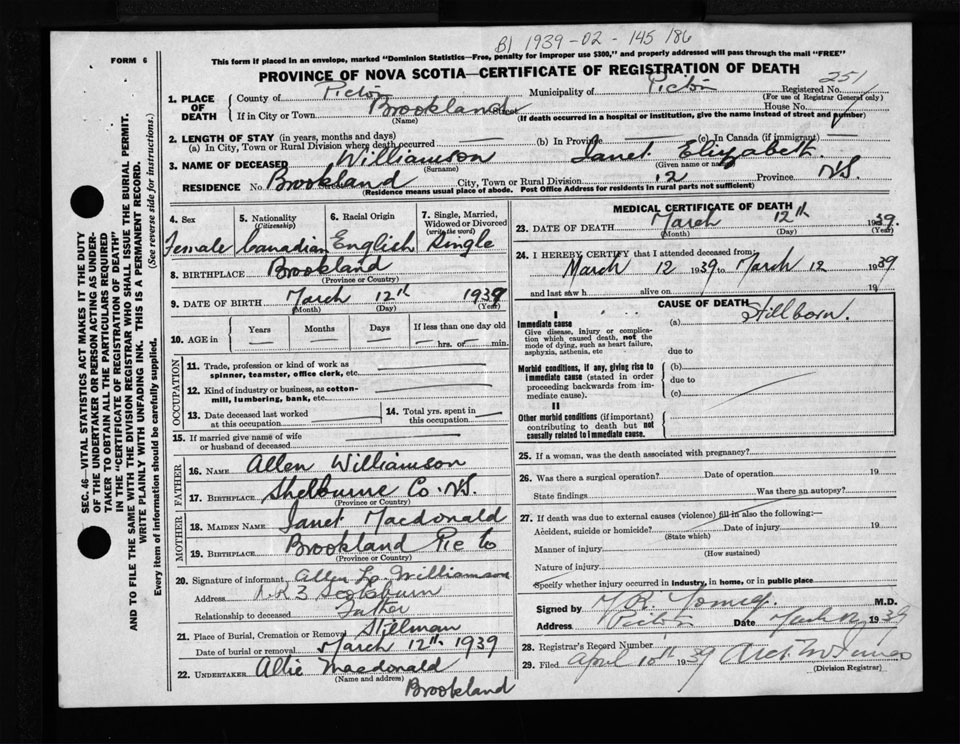 B1 1939-02-145186
FORM 6
This form if placed in an envelope, marked "Dominion Statistics—Free, penalty for improper use $300," and properly addressed will pass through the mail "FREE"
PROVINCE OF NOVA SCOTIA—CERTIFICATE OF REGISTRATION OF DEATH
251
1. PLACE OF DEATH
County of Pictou Municipality of Pictou Registered No.
(For use of Registrar General only)
If in City or Town Brookland Street House No.
(Name) (If death occurred in a hospital or institution, give the name instead of street and number)
2. LENGTH OF STAY (in years, months and days)
(a) In City, Town or Rural Division where death occurred (b) In Province (c) In Canada (if immigrant)
3. NAME OF DECEASED Williamson Janet Elizabeth
(Surname) (Given name or names)
RESIDENCE No. Brookland City, Town or Rural Division 12 Province N.S.
(Residence means usual place of abode. Post Office Address for residents in rural parts not sufficient)
4. Sex 5. Nationality 6. Racial Origin 7. Single, Married,
(Citizenship) Widowed or Divorced
(write the word)
Female Canadian English Single
8. BIRTHPLACE Brookland
(Province or Country)
9. DATE OF BIRTH March 12th 1939
(Month) (Day) (Year)
10. AGE in Years Months Days If less than one day old
— — — — hrs. or — min.
OCCUPATION
11. Trade, profession or kind of work as
spinner, teamster, office clerk, etc.
12. Kind of industry or business, as cotton-
mill, lumbering, bank, etc.
13. Date deceased last worked
at this occupation
14. Total yrs. spent in
this occupation
15. If married give name of wife
or husband of deceased
FATHER
16. NAME Allen Williamson
17. BIRTHPLACE Shelburne Co. N.S.
(Province or Country)
MOTHER
18. MAIDEN NAME Janet Macdonald
19. BIRTHPLACE Brookland Pic to
(Province or Country)
20. Signature of informant Allen L. Williamson
Address R.R 3 Scotsburn
Relationship to deceased Father
21. Place of Burial, Cremation or Removal Stillman
Date of burial or removal March 12th 1939
22. UNDERTAKER Allie Macdonald
(Name and address)
Brookland
MEDICAL CERTIFICATE OF DEATH
23. DATE OF DEATH March 12th 1939
(Month) (Day) (Year)
24. I HEREBY CERTIFY that I attended deceased from:
March 12 1939 to March 12 1939
and last saw h alive on 19
CAUSE OF DEATH
I
Immediate cause (a) Stillborn.
Give disease, injury or complica-
tion which caused death, not the
mode of dying, such as heart failure,
asphyxia, asthenia, etc due to
Morbid conditions, if any, giving rise to (b)
immediate cause (stated in order due to
proceeding backwards from im-
mediate cause). (c)
II
Other morbid conditions (if important)
contributing to death but not
causally related to immediate cause.
25. If a woman, was the death associated with pregnancy?
26. Was there a surgical operation? Date of operation 19
State findings Was there an autopsy?
27. If death was due to external causes (violence) fill in also the following:—
Accident, suicide or homicide? Date of injury 19
(State which)
Manner of injury
(How sustained)
Nature of injury
Specify whether injury occurred in industry, in home, or in public place
Signed by M.D.
Address Pictou Date March 12 1939
28. Registrar's Record Number
29. Filed April 10th 1939
(Division Registrar)
SEC. 46—VITAL STATISTICS ACT MAKES IT THE DUTY
OF THE UNDERTAKER OR PERSON ACTING AS UNDER-
TAKER TO OBTAIN ALL THE PARTICULARS REQUIRED
IN THE "CERTIFICATE OF REGISTRATION OF DEATH"
AND TO FILE THE SAME WITH THE DIVISION REGISTRAR WHO SHALL ISSUE THE BURIAL PERMIT.
WRITE PLAINLY WITH UNFADING INK. THIS IS A PERMANENT RECORD.
Every item of information should be carefully supplied. (See reverse side for instructions.)